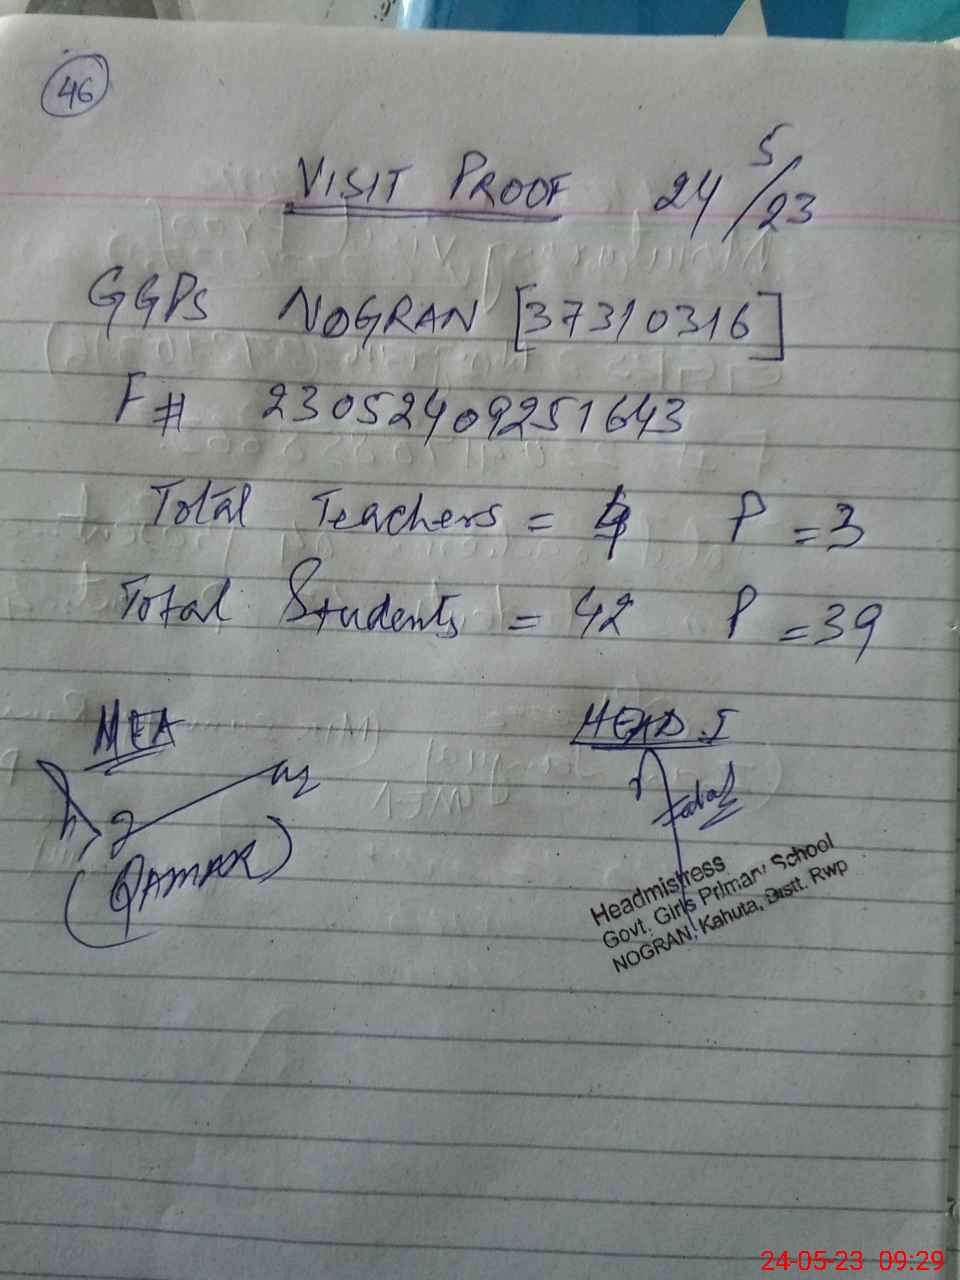 46
VISIT PROOF 24/5/23
GGPS NOGRAN [37310316]
F# 23052409251643
Total Teachers = 4 P = 3
Total Students = 42 P = 39
MEA
HEAD.T
(QAMAR)
Headmistress
Govt. Girls Primary School
NOGRAN, Kahuta, Distt. Rwp
24-05-23 09:29